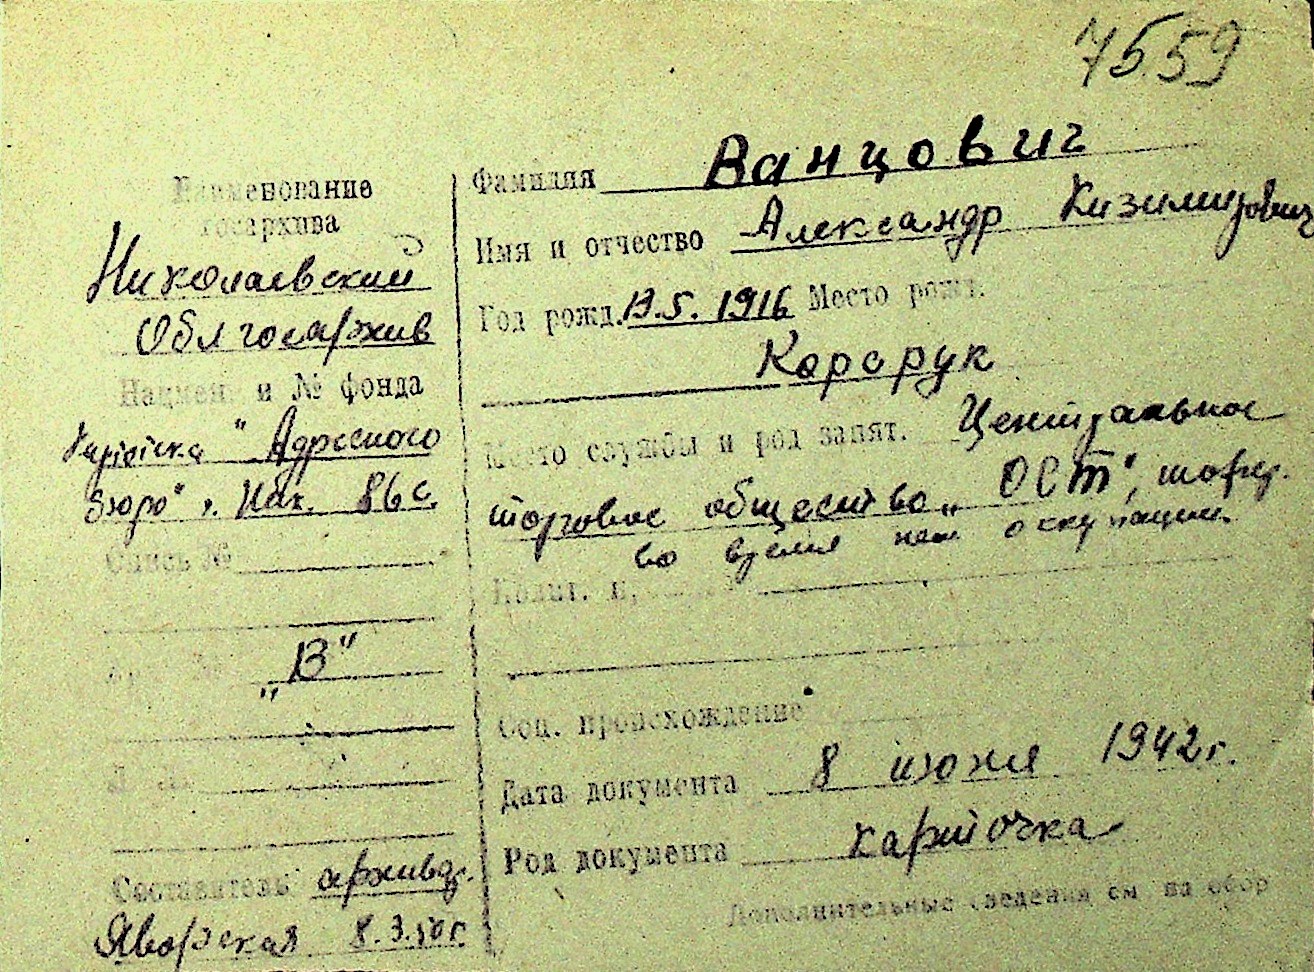 7559
Наименование
госархива
Николаевский
Облгосархив
Наимен. и № фонда
Картотека "Адресного
бюро". Нах. 86 с.
Опись №
„В"
Составитель архивар.
Яворская 8.3.50 г.
Фамилия Ванцович
Имя и отчество Александр Кизимирович
Год рожд. 13.5.1916 Место рожд.
Корсрук
Место службы и род занят. Центральное
торговое общество „ОСТ", шофер.
во время нем оккупации.
Полит. п.
Соц. происхождение
Дата документа 8 июня 1942 г.
Род документа карточка
Дополнительные сведения см. на обор